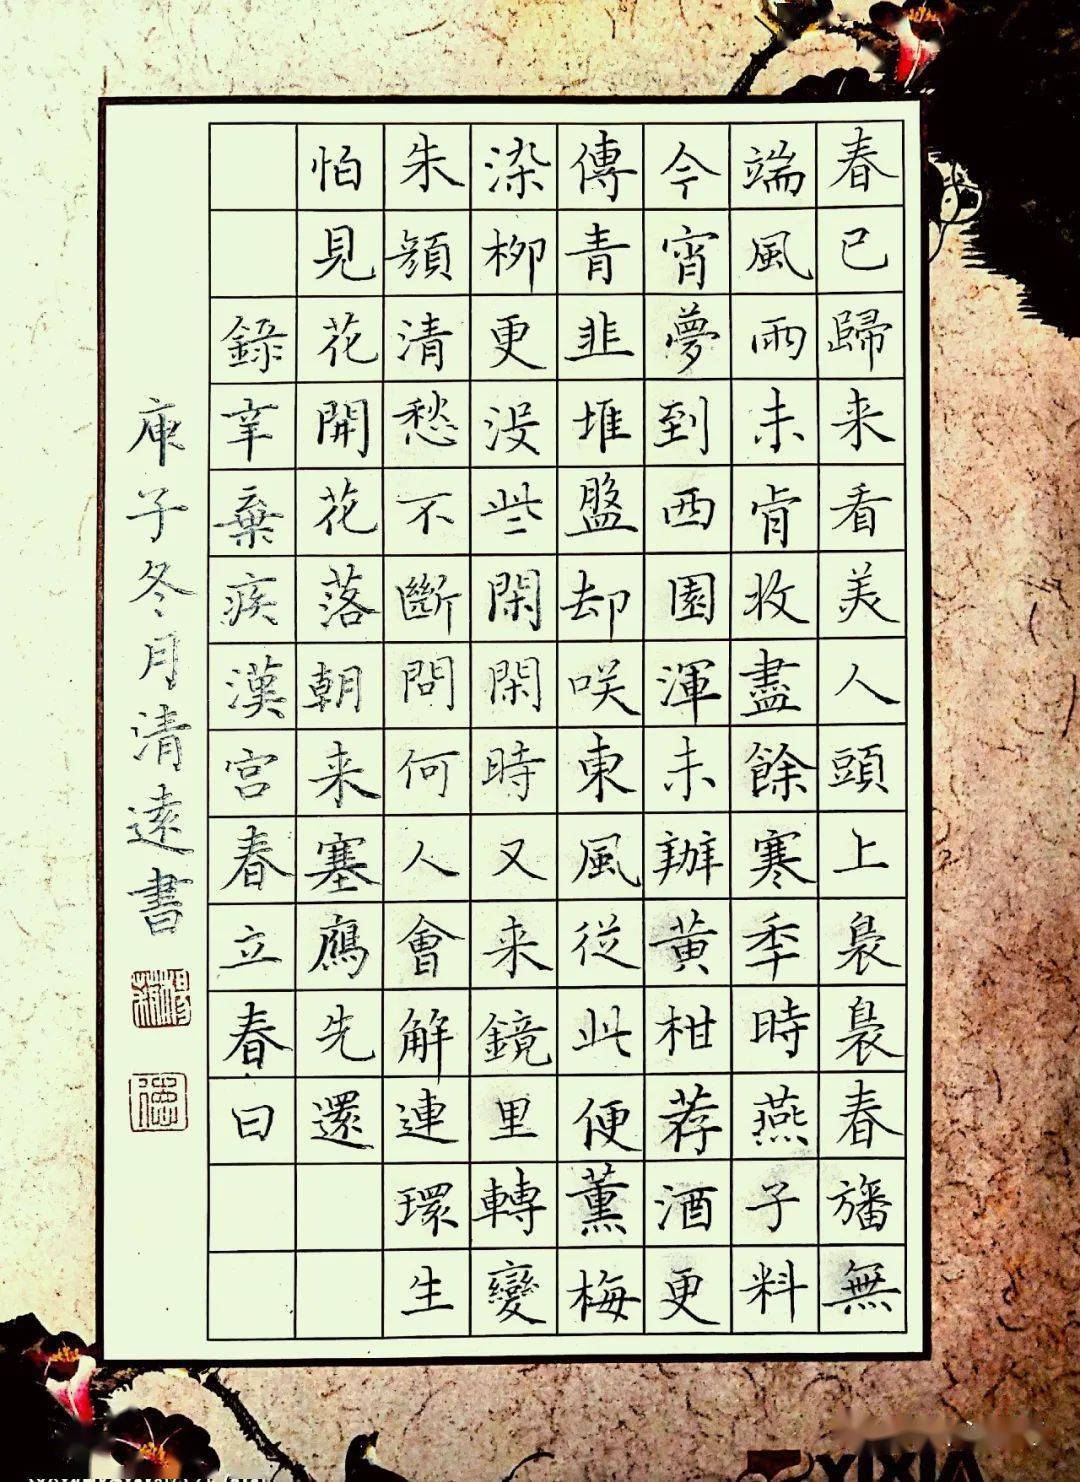 春已歸来看美人頭上裊裊春旛無
端風雨未肯收盡餘寒季時燕子料
今宵夢到西園渾未辦黄柑荐酒更
傳青韭堆盤却咲東風從此便薰梅
染柳更没些閑閑時又来鏡里轉變
朱顔清愁不斷問何人會解連環生
怕見花開花落朝来塞鴈先還
錄辛棄疾漢宫春立春日
庚子冬月清遠書
YIXIA